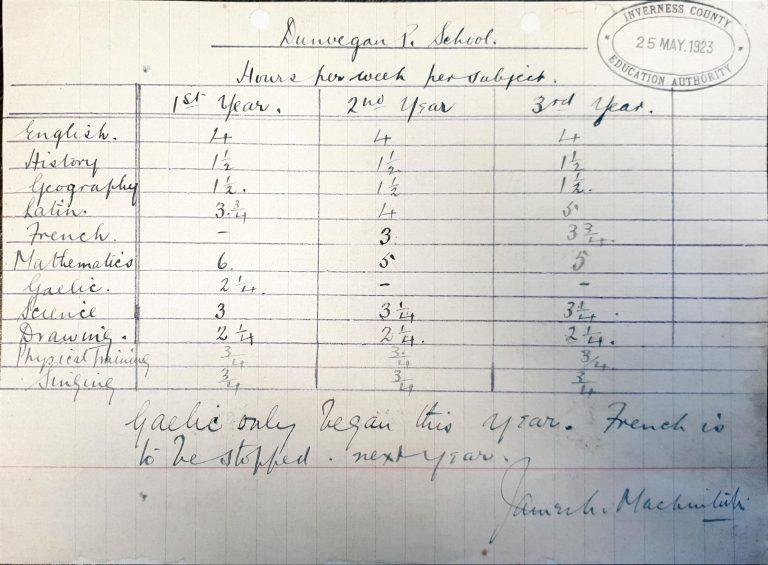 Dunvegan P. School.
INVERNESS COUNTY
25 MAY. 1923
EDUCATION AUTHORITY
Hours per week per subject.
1st Year. 2nd Year 3rd Year.
English. 4 4 4
History 1 1/2 1 1/2 1 1/2
Geography 1 1/2. 1 1/2 1 1/2.
Latin. 3. 3/4 4 5
French. - 3 3 3/4.
Mathematics 6. 5 5
Gaelic. 2 1/4. - -
Science 3 3 1/4 3 1/4.
Drawing. 2 1/4 2 1/4. 2 1/4.
Physical Training 3/4 3/4 3/4
Singing 3/4 3/4 3/4
Gaelic only began this year. French is
to be stopped. next year.